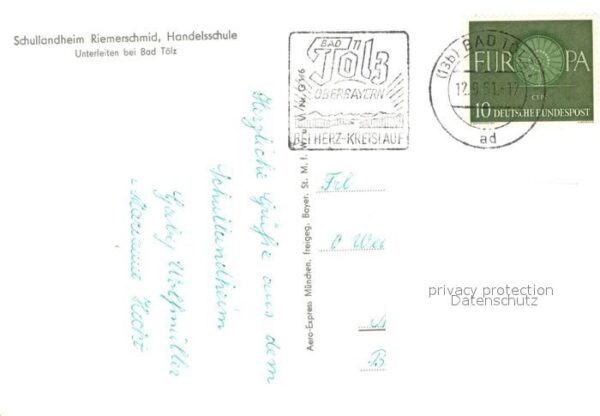 Schullandheim Riemerschmid, Handelsschule
Unterleiten bei Bad Tölz
BAD
Tölz
OBERBAYERN
BEI HERZ-KREISLAUF
(13b) BAD TÖ
12.9.61.-17
ad
EUROPA
CEPT
10 DEUTSCHE BUNDESPOST
Herzliche Grüße aus dem
Schullandheim
Gaby
Aero-Express München, freigeg. Bayer. St. M. f. W. u. V. Nr. G 6/6
Frl
privacy protection
Datenschutz